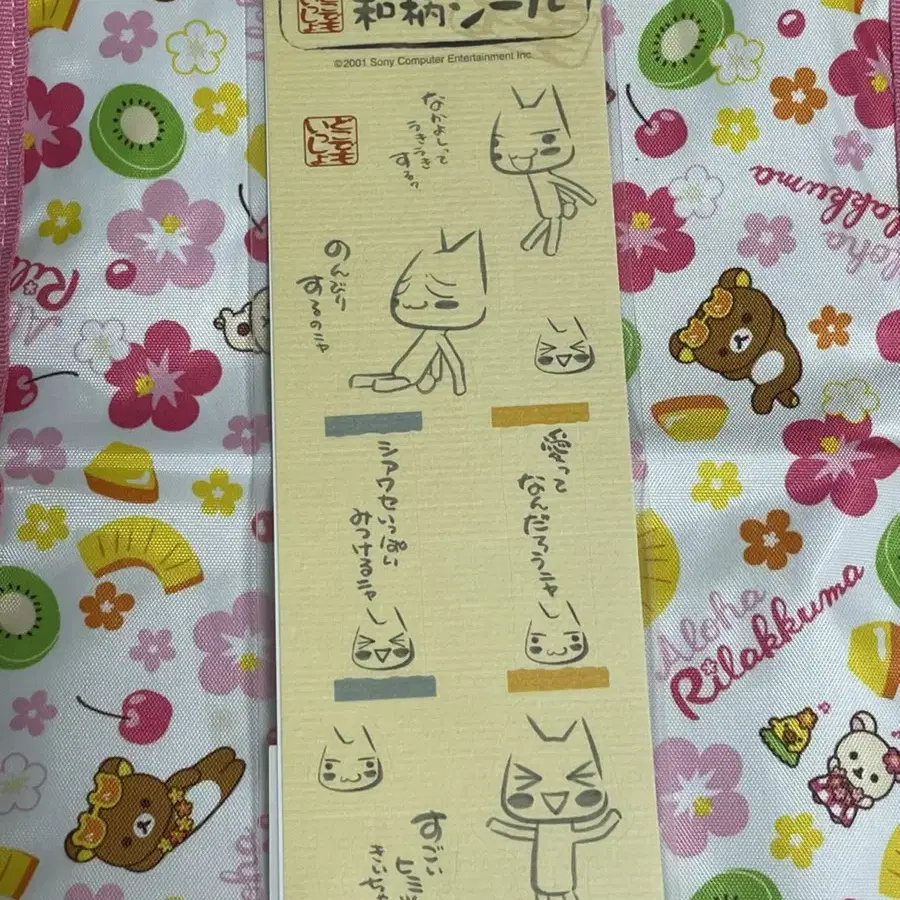 どこでもいっしょ
和柄シール
©2001 Sony Computer Entertainment Inc.
どこでも
いっしょ
なかよしって
うきうき
するっ
のんびり
するのニャ
愛って
なんだろうニャ
シアワセいっぱい
みつけるニャ
すごい
Aloha
Rilakkuma
Aloha
Rilakkuma